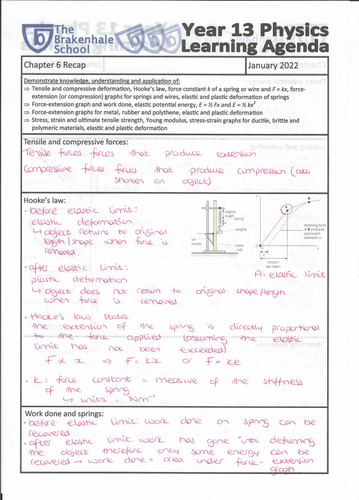 The
Brakenhale
School
Year 13 Physics
Learning Agenda
Chapter 6 Recap
January 2022
Demonstrate knowledge, understanding and application of:
⇒ Tensile and compressive deformation, Hooke's law, force constant k of a spring or wire and F = kx, force-
extension (or compression) graphs for springs and wires, elastic and plastic deformation of springs
⇒ Force-extension graph and work done, elastic potential energy, E = ½ Fx and E = ½ kx²
⇒ Force-extension graphs for metal, rubber and polythene, elastic and plastic deformation
⇒ Stress, strain and ultimate tensile strength, Young modulus, stress-strain graphs for ductile, brittle and
polymeric materials, elastic and plastic deformation
Tensile and compressive forces:
Tensile forces: forces that produce extension
Compressive forces: forces that produce compression (aka
shorten an object)
Hooke's law:
• before elastic limit:
elastic deformation
↳ object returns to original
length / shape when force is
removed.
• after elastic limit:
plastic deformation
↳ object does not return to original shape/length
when force is removed.
A: elastic limit
• Hooke's law states:
the extension of the spring is directly proportional
to the force applied (assuming the elastic
limit has not been exceeded)
F ∝ x ⇒ F = kx or F = ke
• k = force constant = measure of the stiffness
of the spring
↳ units = Nm⁻¹
Work done and springs:
• before elastic limit work done on spring can be
recovered
• after elastic limit work has gone into deforming
the object therefore only some energy can be
recovered → work done = area under force-extension
graph